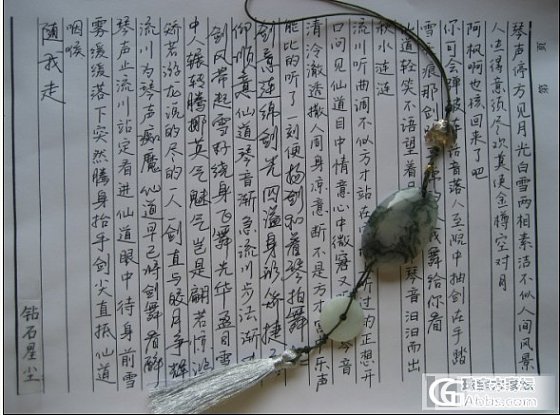 琴声停方见月光白雪两相萦洁不似人间风景
人生得意须尽欢莫使金樽空对月
阿枫啊也该回来了吧
你可会弹破阵 话音落人至院中抽剑在手踏
雪无痕那剑 我舞给你看
仙道轻笑不语望着 琴音汩汩而出
秋水涟涟
流川听曲调不似方才站在 听过的正想开
口问见仙道目中情意心中微窘又 琴音
清泠澈透撒人周身凉意断不是方才 乐声
能比的听了一刻便扬剑和着琴拍舞
剑意连绵剑光四溢身形矫捷
仰倾真仙道琴音渐急流川步法渐
剑风带起雪好绕身飞舞光华盈目雪
中人辗轻腾挪英气魅气岂是翩若惊鸿
矫若游龙说的尽的一人一剑直与皎月争辉
流川为琴声痴魔仙道早已将剑舞看醉
琴声止流川站定看进仙道眼中待身前雪
雾缓缓落下突然腾身抬手剑尖直抵仙道
咽喉
随我走
钻石星尘
GAlobo.com